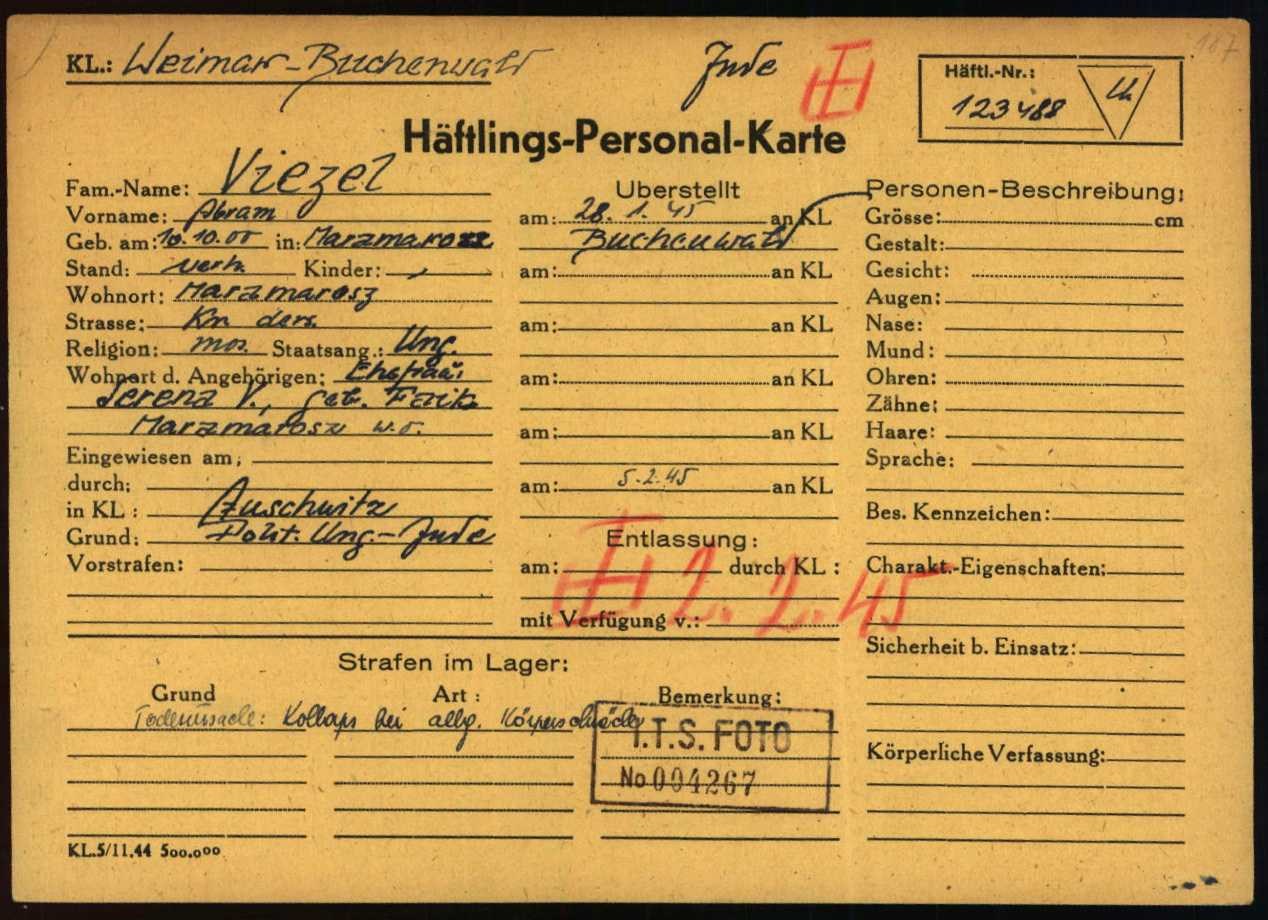 167
KL.: Weimar-Buchenwald
Jude
Häftl.-Nr.:
123488
U
Häftlings-Personal-Karte
Fam.-Name: Viezel
Vorname: Abram
Geb. am: 10.10.00 in: Marzmarosz
Stand: verh. Kinder: -
Wohnort: Marzmarosz
Strasse: Kn. ders.
Religion: mos. Staatsang.: Ung.
Wohnort d. Angehörigen: Ehefrau:
Serena V., geb. Faik
Marzmarosz w.o.
Eingewiesen am:
durch:
in KL: Auschwitz
Grund: Polit. Ung-Jude
Vorstrafen:
Uberstellt
am: 28. 1. 45 an KL
Buchenwald
am: an KL
am: an KL
am: an KL
am: an KL
am: 5.2.45 an KL
Entlassung:
am: durch KL:
mit Verfügung v.:
2.2.45
Personen-Beschreibung:
Grösse: cm
Gestalt:
Gesicht:
Augen:
Nase:
Mund:
Ohren:
Zähne:
Haare:
Sprache:
Bes. Kennzeichen:
Charakt.-Eigenschaften:
Sicherheit b. Einsatz:
Körperliche Verfassung:
Strafen im Lager:
Grund Art: Bemerkung:
Todesursache: Kollaps bei allg. Körperschwäche
I.T.S. FOTO
No 004267
KL.5/11.44 500.000